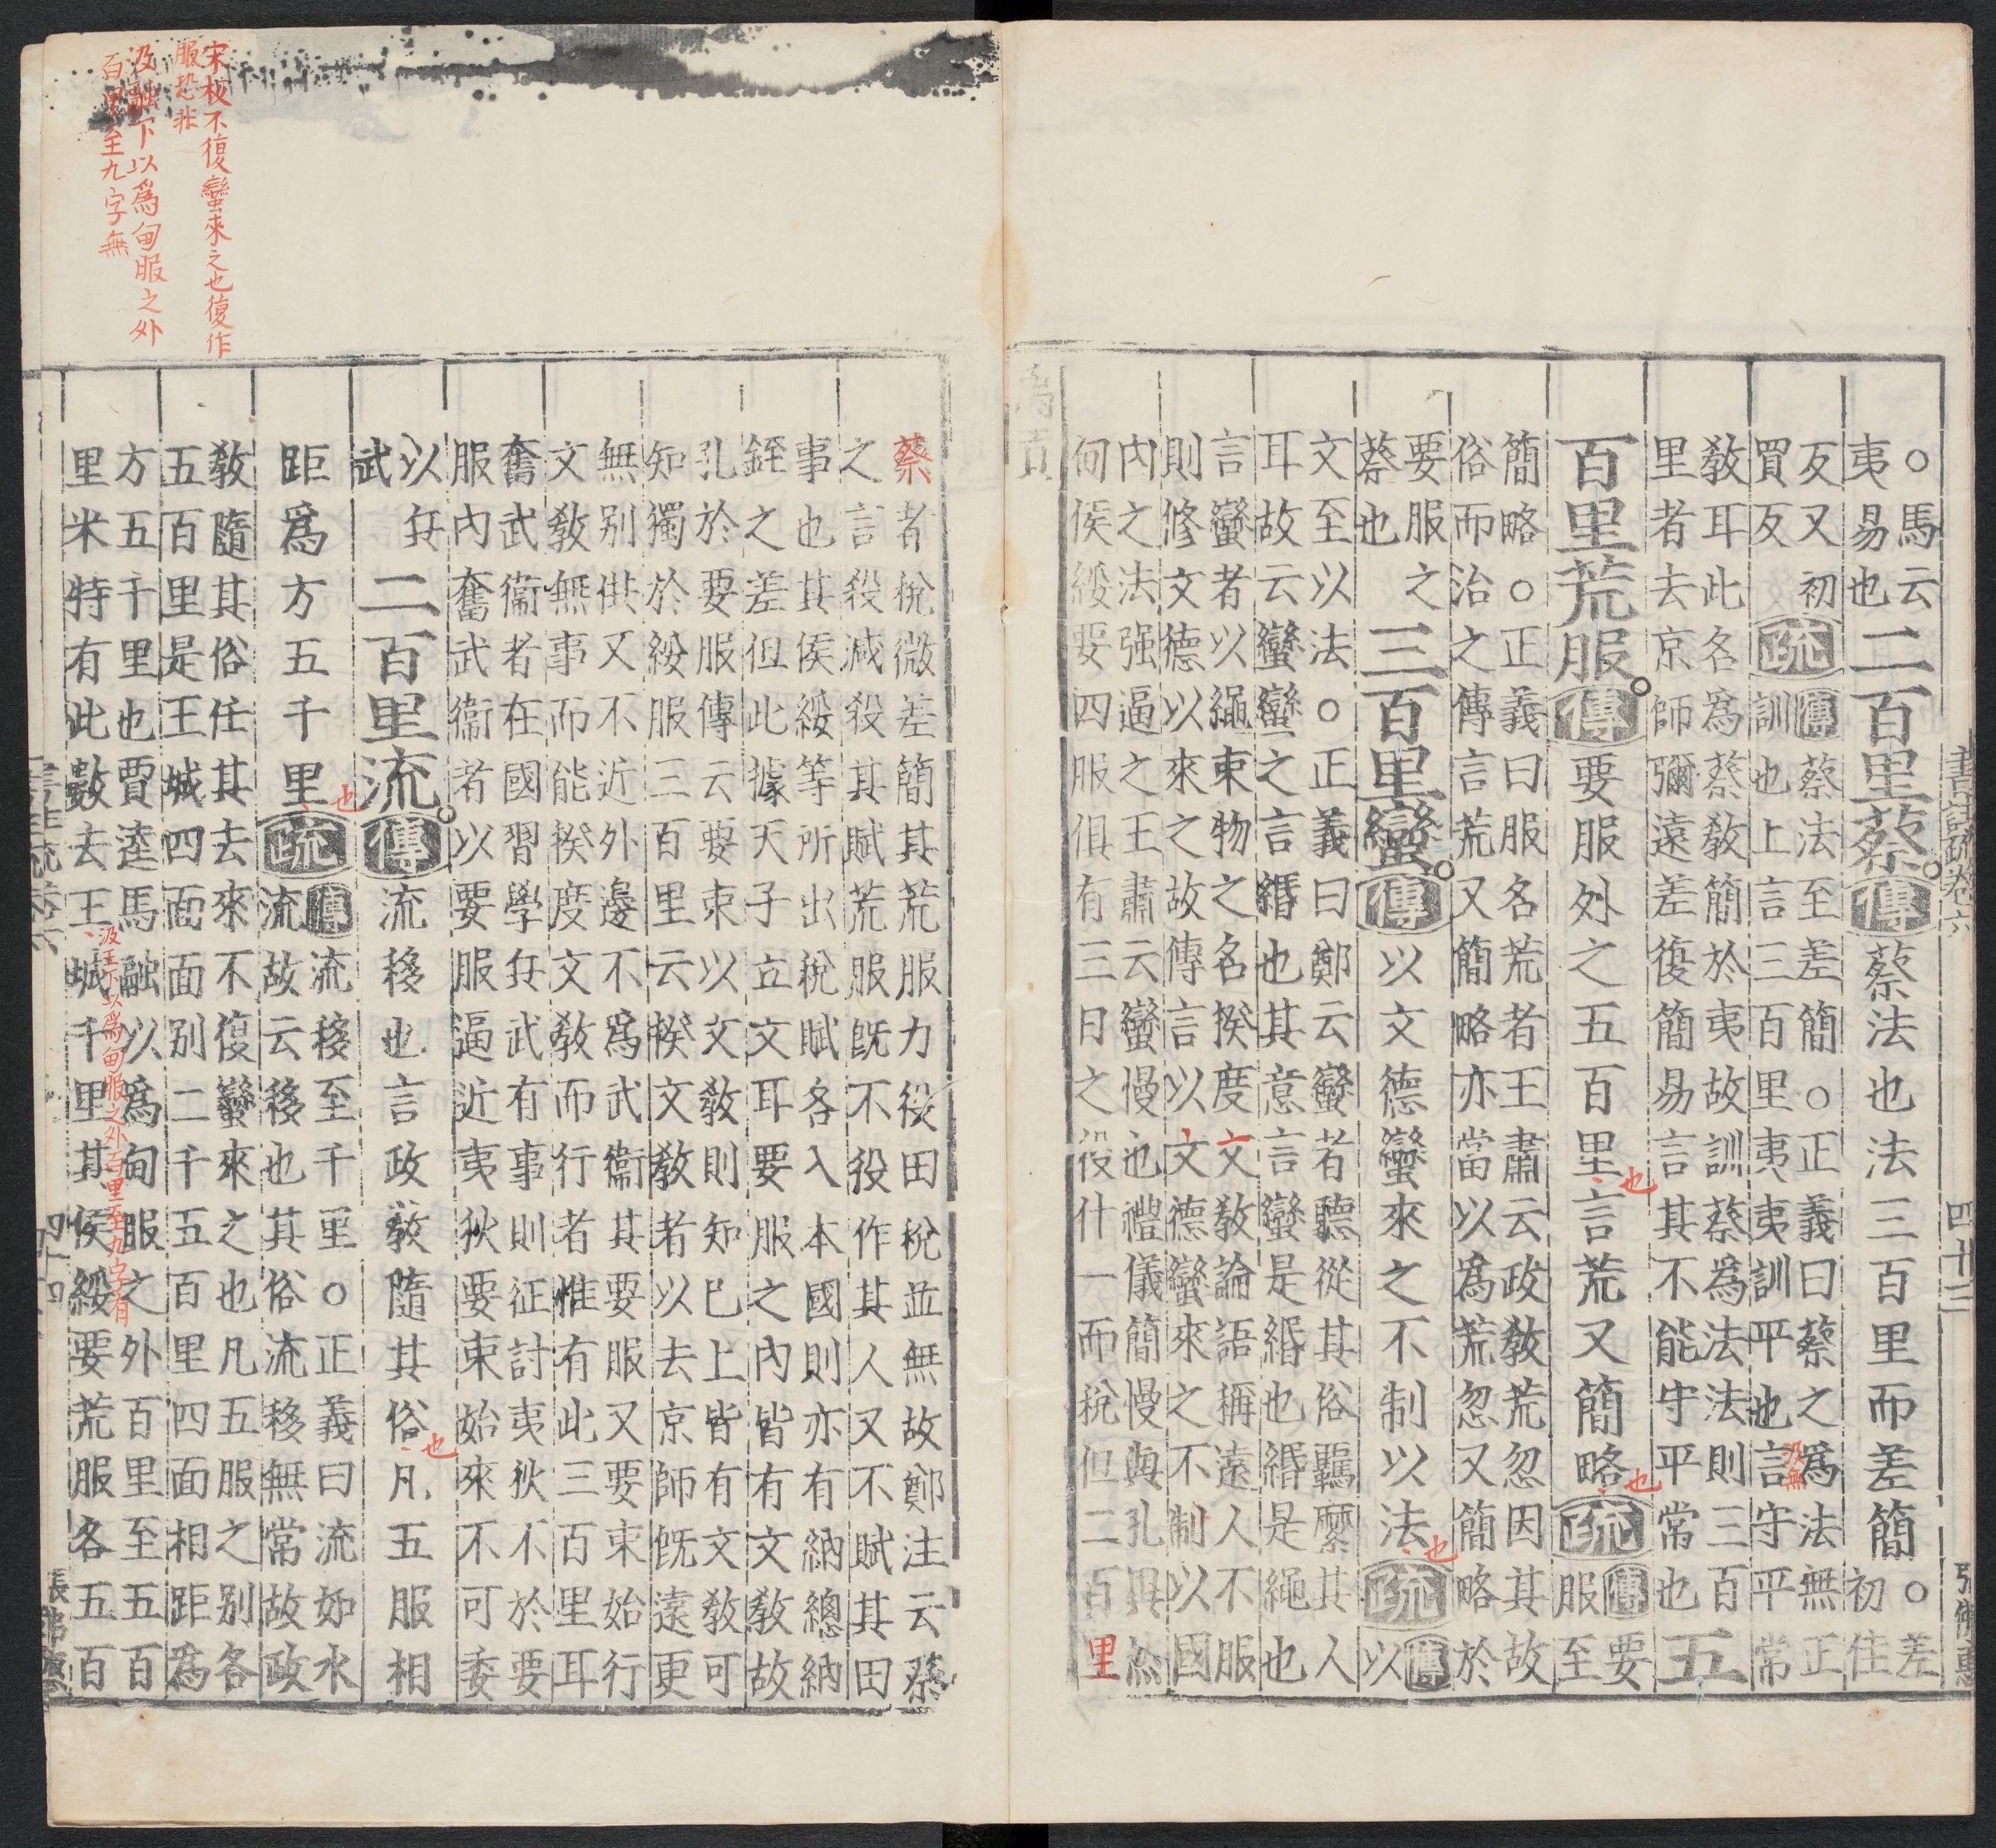 書註疏卷六 四十三 張佛惠
○馬云
夷易也
二百里蔡。傳蔡法也法三百里而差簡○
差
初佳
反又初
買反
疏
傳蔡法至差簡○正義曰蔡之為法無正
訓也上言三百里夷夷訓平也言守平平常
汲無
教耳此名爲蔡教簡於夷故訓蔡爲法法則三百
里者去京師彌遠差復簡易言其不能守平常也
五
百里荒服。傳要服外之五百里也言荒又簡略也疏
傳要
服至
簡略○正義曰服名荒者王肅云政教荒忽因其故
俗而治之傳言荒又簡略亦當以爲荒忽又簡略於
要服之
蔡也
三百里蠻。傳以文德蠻來之不制以法也疏
傳
以
文至以法○正義曰鄭云蠻者聽從其俗羈縻其人
耳故云蠻蠻之言緡也其意言蠻是緡也緡是繩也
言蠻者以繩束物之名揆度文教論語稱遠人不服
則修文德以來之故傳言以文德蠻來之不制以國
內之法强逼之王肅云蠻慢也禮儀簡慢與孔異然
甸侯綏要四服俱有三日之役什一而稅但二百里
禹貢
宋板不復蠻來之也復作
服恐非
汲融下以爲甸服之外
百里至九字無
蔡者稅微差簡其荒服力役田稅並無故鄭注云蔡
之言殺減殺其賦荒服既不役作其人又不賦其田
事也其侯綏等所出稅賦各入本國則亦有納總納
銍之差但此據天子立文耳要服之內皆有文教故
孔於要服傳云要束以文教則知已上皆有文教可
知獨於綏服三百里云揆文教者以去京師既遠更
無别供又不近外邊不爲武衞其要服又要束始行
文教無事而能揆度文教而行者惟有此三百里耳
奮武衞者在國習學兵武有事則征討夷狄不於要
服內奮武衞者以要服逼近夷狄要束始來不可委
以兵
武
二百里流。傳流移也言政教隨其俗也凡五服相
距爲方五千里也疏
傳流移至千里○正義曰流如水
流故云移也其俗流移無常故政
教隨其俗任其去來不復蠻來之也凡五服之别各
五百里是王城四面面别二千五百里四面相距為
方五千里也賈逵馬融以為甸服之外百里至五百
里米特有此數去王城千里其侯綏要荒服各五百
汲王下以爲甸服之外百里至九字有
書註疏卷六 四十四 張佛惠